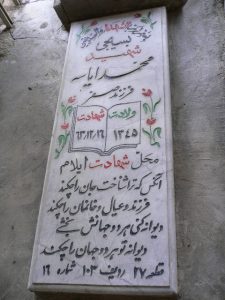 بسیجی
شهید
محمد ایاسه
فرزند یوسف
ولادت شهادت
۱۳۴۵ ۶۳/۱۲/۱۶
محل شهادت ایلام
آنکس که ترا شناخت جان را چکند
فرزند و عیال و خانمان را چکند
دیوانه کنی هر دو جهانش بخشی
دیوانه تو هر دو جهان را چکند
قطعه ۲۷ ردیف ۱۰۳ شماره ۱۶